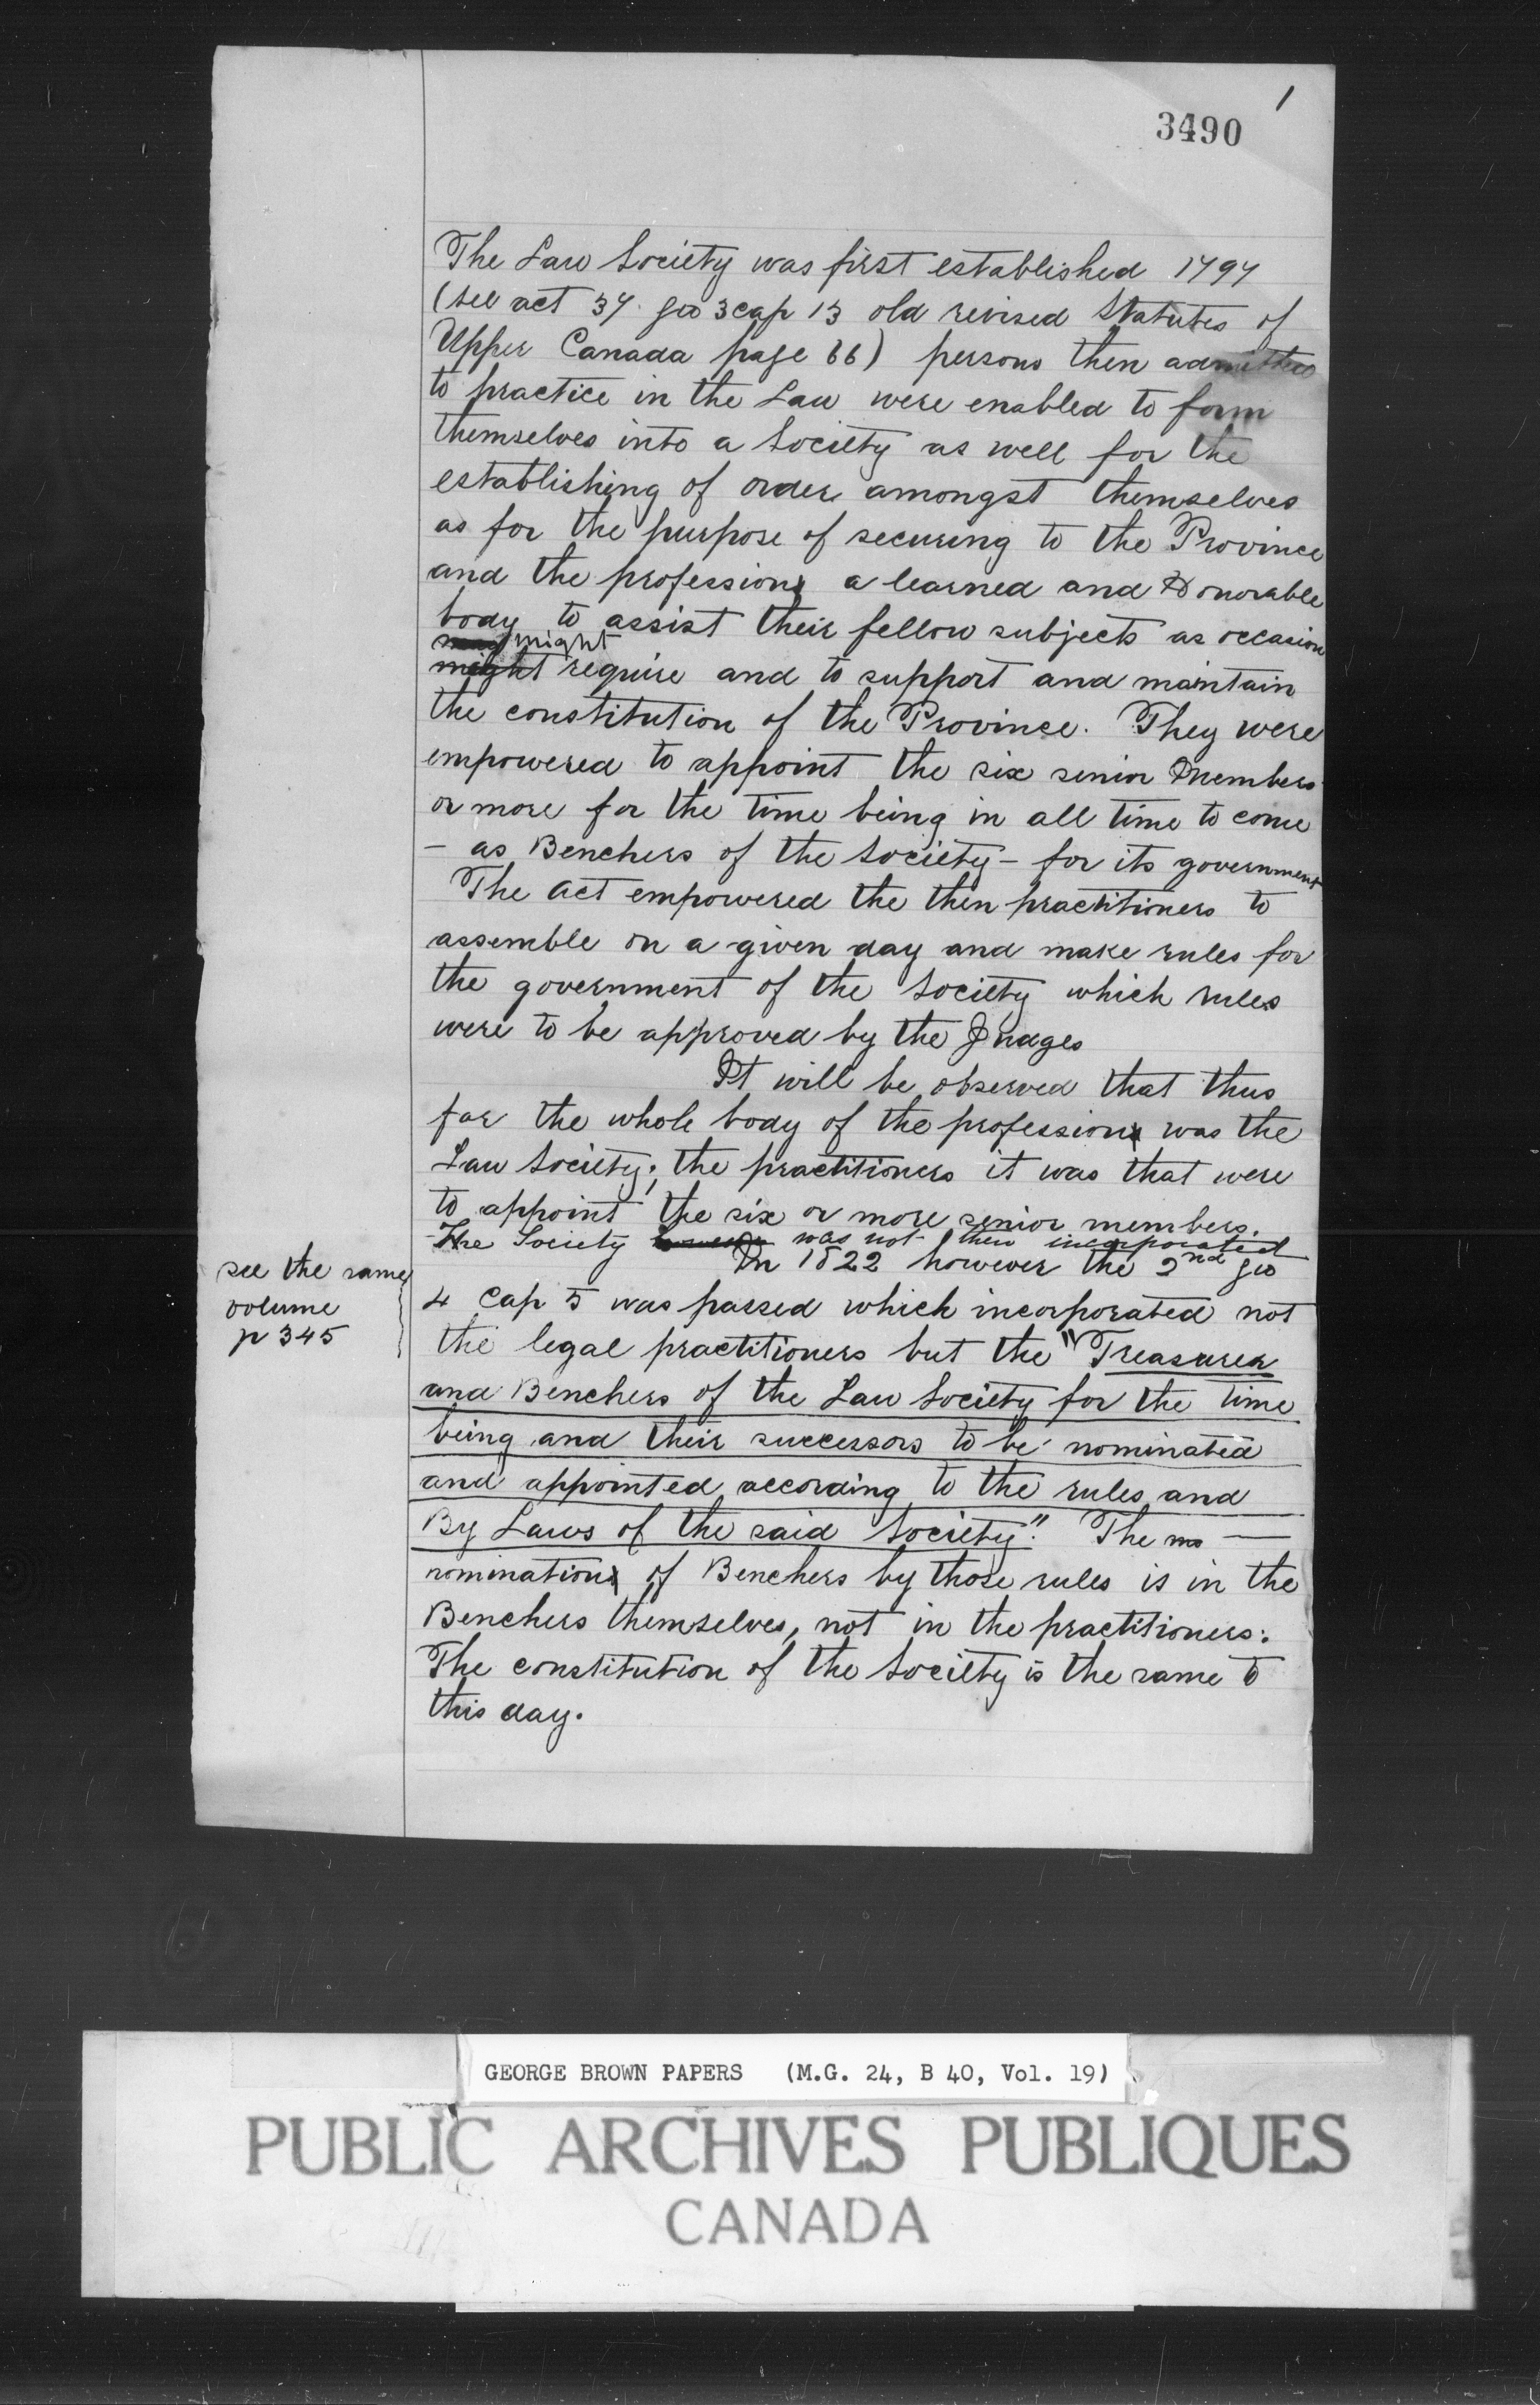 1
3490
The Law Society was first established 1797
(see act 37. Geo 3 cap 13 old revised Statutes of
Upper Canada page 66) persons then admitted
to practice in the Law were enabled to form
themselves into a Society as well for the
establishing of order amongst themselves
as for the purpose of securing to the Province
and the profession a learned and Honorable
body to assist their fellow subjects as occasion
might
might require and to support and maintain
the constitution of the Province. They were
empowered to appoint the six senior Members
or more for the time being in all time to come
- as Benchers of the Society - for its government
The Act empowered the then practitioners to
assemble on a given day and make rules for
the government of the Society which rules
were to be approved by the Judges
It will be observed that thus
far the whole body of the profession was the
Law Society; the practitioners it was that were
to appoint the six or more senior members.
The Society was not then incorporated
In 1822 however the 2nd Geo
see the same
volume
p 345
4 Cap 5 was passed which incorporated not
the legal practitioners but the "Treasurer
and Benchers of the Law Society for the time
being and their successors to be nominated
and appointed according to the rules and
By Laws of the said Society." The no —
nomination of Benchers by those rules is in the
Benchers themselves, not in the practitioners.
The constitution of the Society is the same to
this day.
GEORGE BROWN PAPERS (M.G. 24, B 40, Vol. 19)
PUBLIC ARCHIVES PUBLIQUES
CANADA